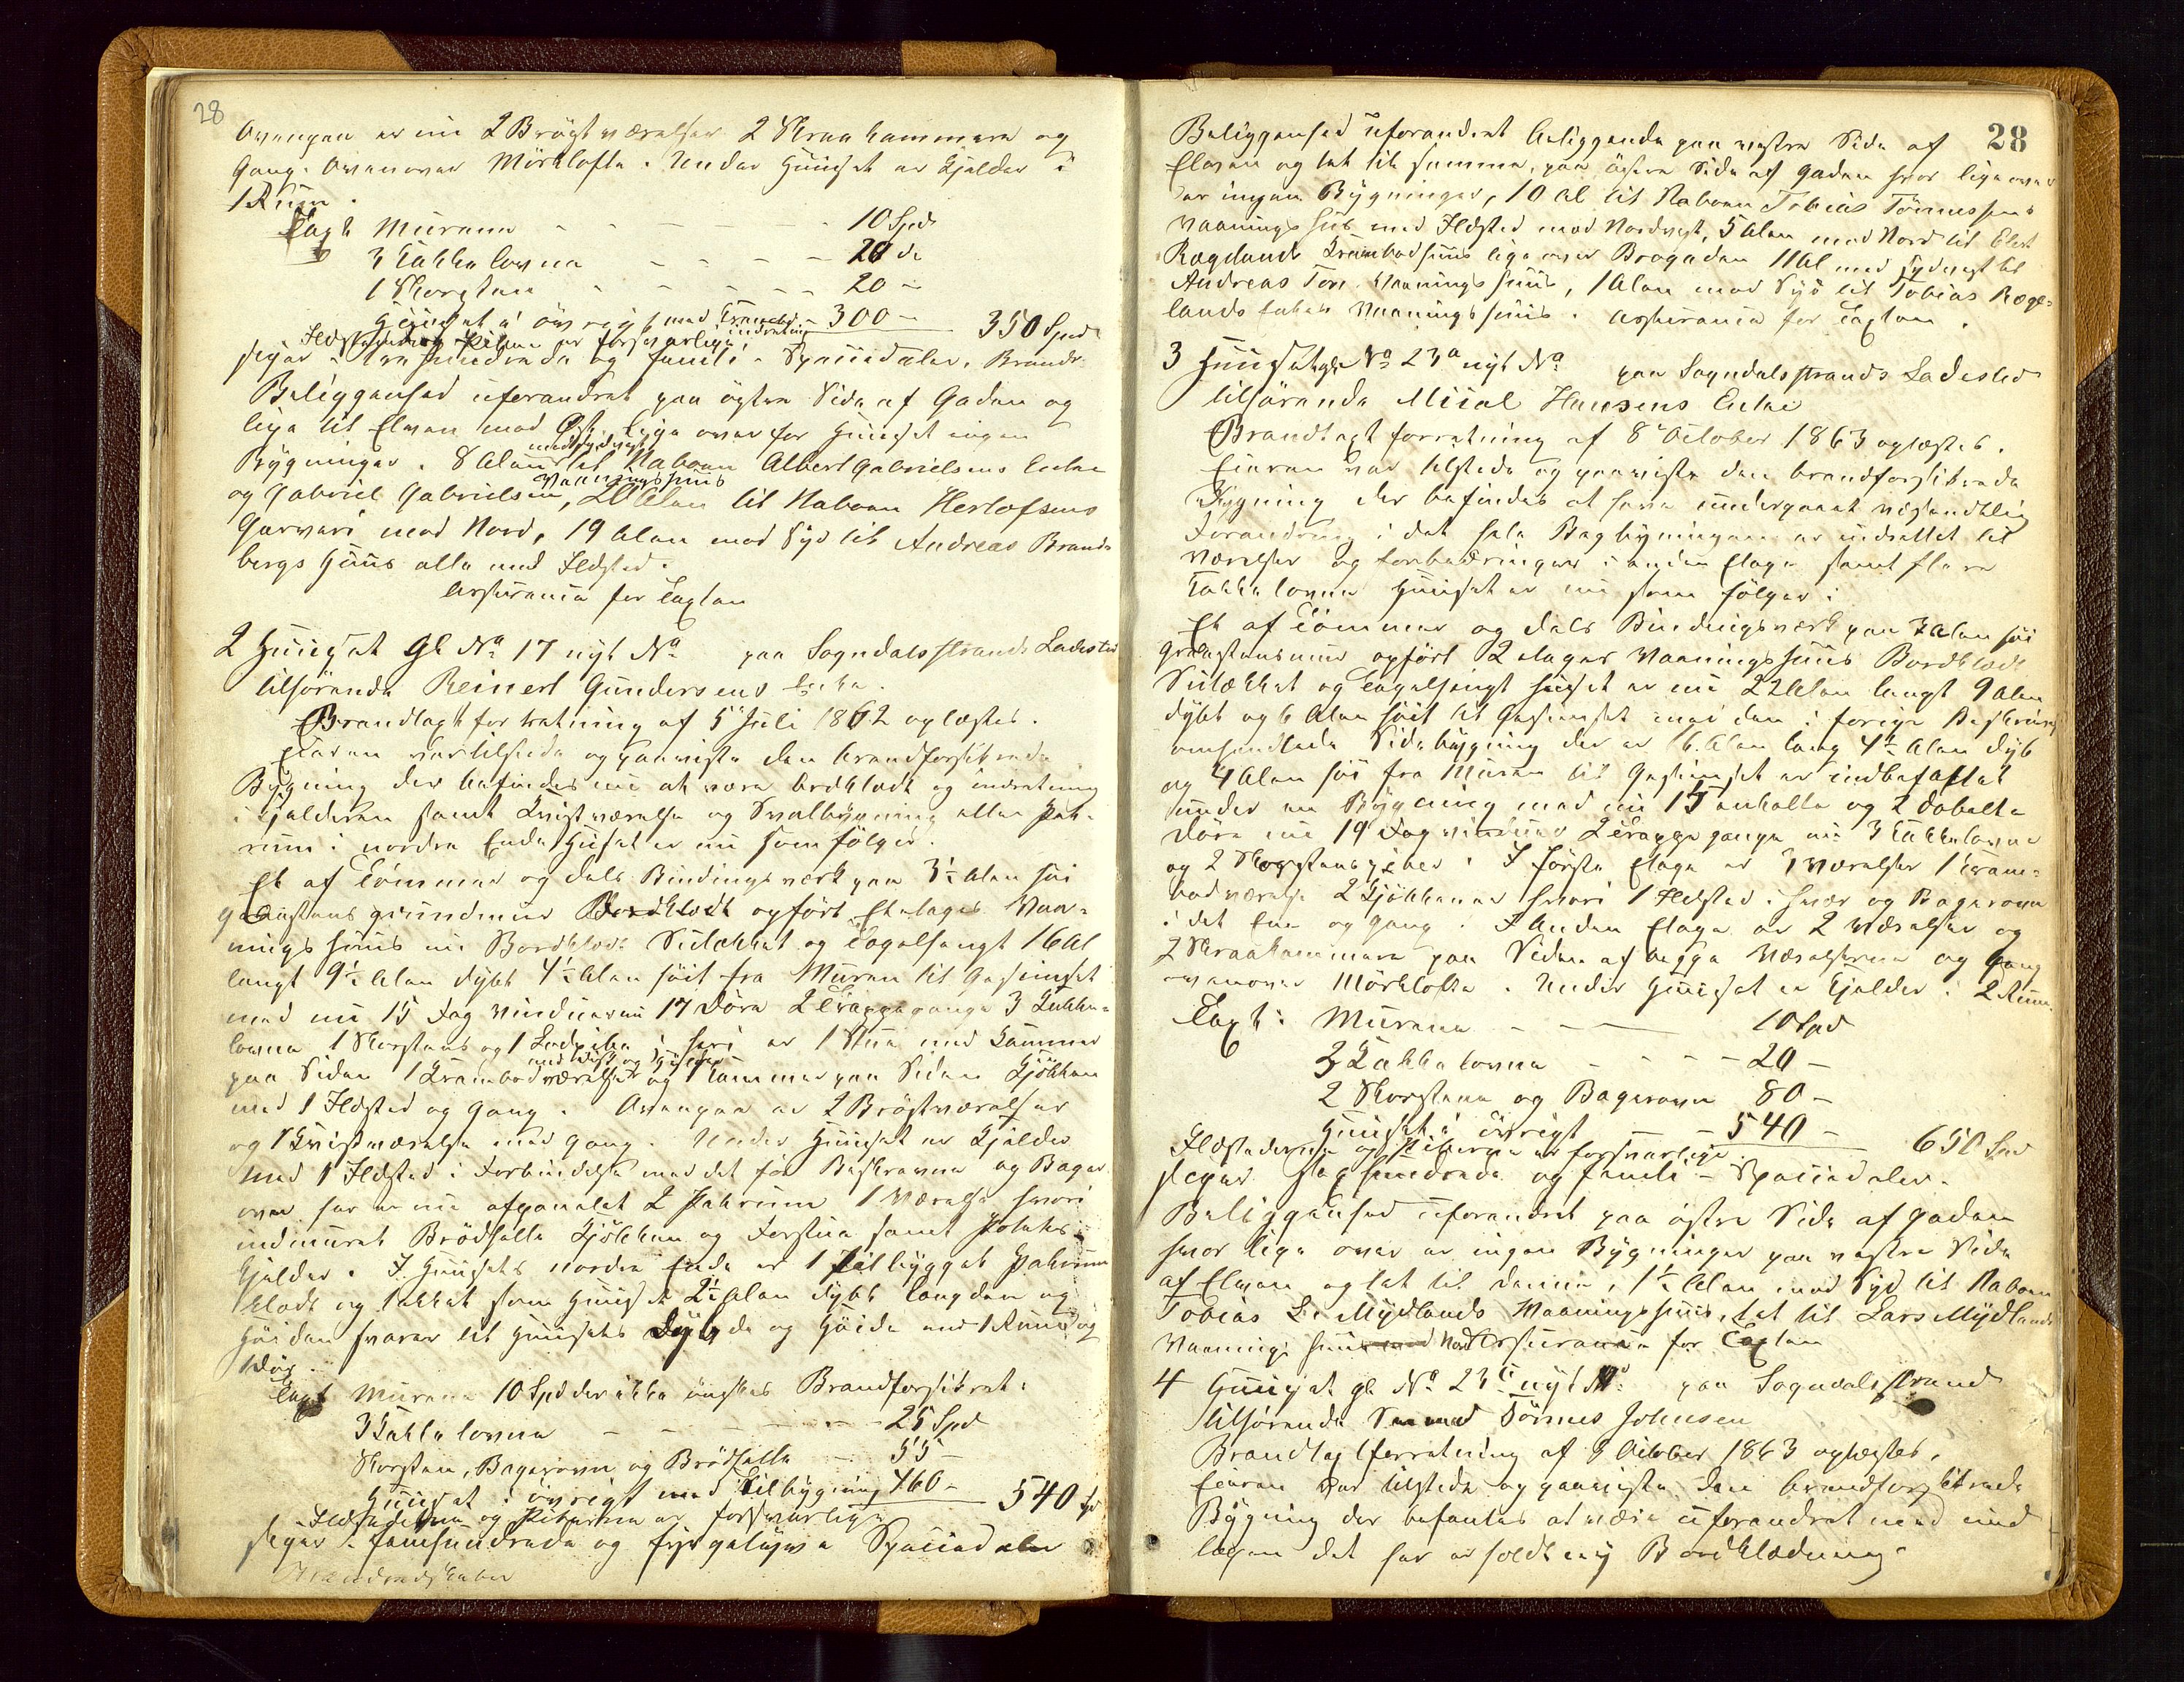 28
Ovenpaa er nu 2 Brøstværelser 2 Skraakammere og
Gang. Ovenover Mørklofte. Under Huuset er Kjelder i
1 Rum.
Taxt Murene - - - - 10 Spd
3 Kakkelovne - - - - 20 do
1 Skorsten - - - - 20 -
Huuset i øvrigt med Krambod indretning 300 -
350 Spd
Ildstederne Piberne er forsvarlige.
siger trehundrede og femti - Speciedaler. Brands
Beliggenhed uforandret paa østre Side af Gaden og
lige til Elven mod Øst. Lige over for Huuset ingen
Bygninger. 8 Alen mod Sydvest til Naboen Albert Gabrielsens Enke
og Gabriel Gabrielsen Vaaningshuus, 20 Alen til Naboen Herlofsens
Garveri mod Nord, 19 Alen mod Syd til Andreas Brands
bergs Huus alle med Ildsted.
Assurance for Taxten
2 Huuset gl No 17 nyt No paa Sogndalsstrands Ladested
tilhørende Reinert Gundersens Enke.
Brandtaxtforretning af 5 Juli 1862 oplæstes.
Eieren var tilstede og paaviste den brandforsikrede
Bygning der befindes nu at være bordklædt og indretning
i Kjelderen samt Kvistværelse og Svalbygning eller Pak-
rum i nordre Ende. Huset er nu som følger.
Et af Tømmer og dels Bindingsværk paa 3½ Alen høi
graastens grundmur Bordklædt opført Etetages Vaa-
ningshuus nu Bordklædt Sutækket og Tagelhengt 16 Al
langt 9½ Alen dybt 4½ Alen høit fra Muren til Gesimset
med nu 15 Fag vinduer nu 17 Døre 2 Trappegange 3 Kakkel-
lovne 1 Skorstens og 1 Ledpibe; heri er 1 Stue med Kammer
paa Siden 1 Krambodværelse med Disk og Hylder og 1 Kammer paa Siden Kjøkken
med 1 Ildsted og Gang. Ovenpaa er 2 Brøstværelser
og 1 Kvistværelse med Gang. Under Huuset er Kjelder
med 1 Ildsted i Forbindelse med det før Beskrevne og Bager
ovn her er nu afpanelet 2 Pakrum 1 Værelse hvori
indmuret Brødhelle Kjøkken og Forstue samt Potetes-
Kjelder. I Huusets nordre Ende er 1 tilbygget Pakrum
klædt og tækket som Huuset 2½ Alen dybt længden og
Høiden svarer til Huusets Dybde og Høide med 1 Rum og
1 Dør.
Taxt Murene 10 Spd der ikke ønskes Brandforsikret.
3 Kakkelovne - - - - 25 Spd
Skorsten, Bagerovn og Brødhelle - 55 -
Huuset i øvrigt med Tilbygning 460 -
540 Spd
Ildstederne og Piberne er forsvarlige
siger femhundrede og fyrgetyve Speciedaler
Brandredskaber
28
Beliggenhed uforandret beliggende paa vestre Side af
Elven og tæt til samme, paa østre Side af Gaden hvor lige over
er ingen Bygninger, 10 Al til Naboen Tobias Tønnessens
Vaaningshus med Ildsted mod Nordvest, 5 Alen mod Nord til Elert
Rægelands Krambodhuus lige over Brogaden 11 Al mod Sydvest til
Andreas Tors Vaaningshuus, 1 Alen mod Syd til Tobias Ræge-
lands Enkes Vaaningshuus. Assurance for Taxten.
3 Huuset gl No 23a nyt No paa Sogndalsstrands Ladested
tilhørende Miial Hansens Enke
Brandtaxtforretning af 8 October 1863 oplæstes.
Eieren var tilstede og paaviste den brandforsikrede
Bygning der befindes at have undergaaet væsendtlig
Forandring i det hele Bagbygningen er indrettet til
værelser og forbedringer i anden Etage samt flere
Kakkelovne Huuset er nu som følger:
Et af Tømmer og dels Bindingsværk paa 3 Alen høi
Graastensmur opført 2 etages Vaaningshuus Bordklædt
Sutækket og Tagelhengt Huuset er nu 22 Alen langt 9 Alen
dybt og 6 Alen høit til Gesimset med den i forige Beskrivelse
omhandlede Sidebygning der er 16 Alen lang 4½ Alen dyb
og 4 Alen høi fra Muren til Gesimset er indbefattet
under en Bygning med nu 15 enkelte og 2 dobelte
Døre nu 19 Fag vinduer 2 Trappegange nu 3 Kakkelovne
og 2 Skorstenspiber. I første Etage er 3 værelser 1 Kram-
bodværelse 2 Kjøkkener hvori 1 Ildsted i hver og Bagerovn
i det Ene og Gang. I Anden Etage er 2 Værelser og
2 Skraakammere paa Siden af begge Værelserne og Gang
ovenover Mørklofte. Under Huuset er Kjelder i 2 Rum.
Taxt: Murene - - - 10 Spd
3 Kakkelovne - - - 20 -
2 Skorstene og Bagerovn 80 -
Huuset i øvrigt - - 540 -
650 Spd
Ildstederne og Piberne er forsvarlige.
siger sexhundrede og femti - Speciedaler.
Beliggenhed uforandret paa østre Side af Gaden
hvor lige over er ingen Bygninger paa vestre Side
af Elven og tæt til denne, 1½ Alen mod Syd til Naboen
Tobias L. Mydlands Vaaningshuus, tæt til Lars Mydlands
Vaanings huus mod Nord Assurance for Taxten
4 Huuset gl No 23b nyt No paa Sogndalsstrand
tilhørende Tønnes Johnsen
Brandtaxtforretning af 8 October 1863 oplæstes.
Eieren var tilstede og paaviste den brandforsikrede
Bygning der befantes at være uforandret med und
tagen det har erholdt ny Bordklædning